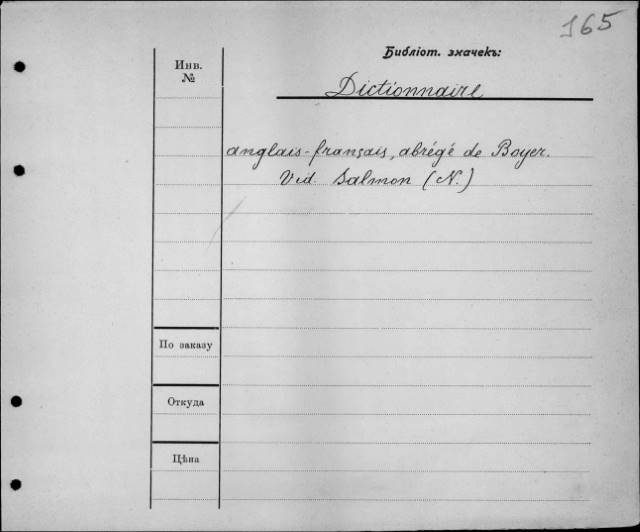 165
Библіот. значекъ:
Инв.
№
Dictionnaire
anglais-français, abrégé de Boyer.
Vid. Salmon (N.)
По заказу
Откуда
Цѣна